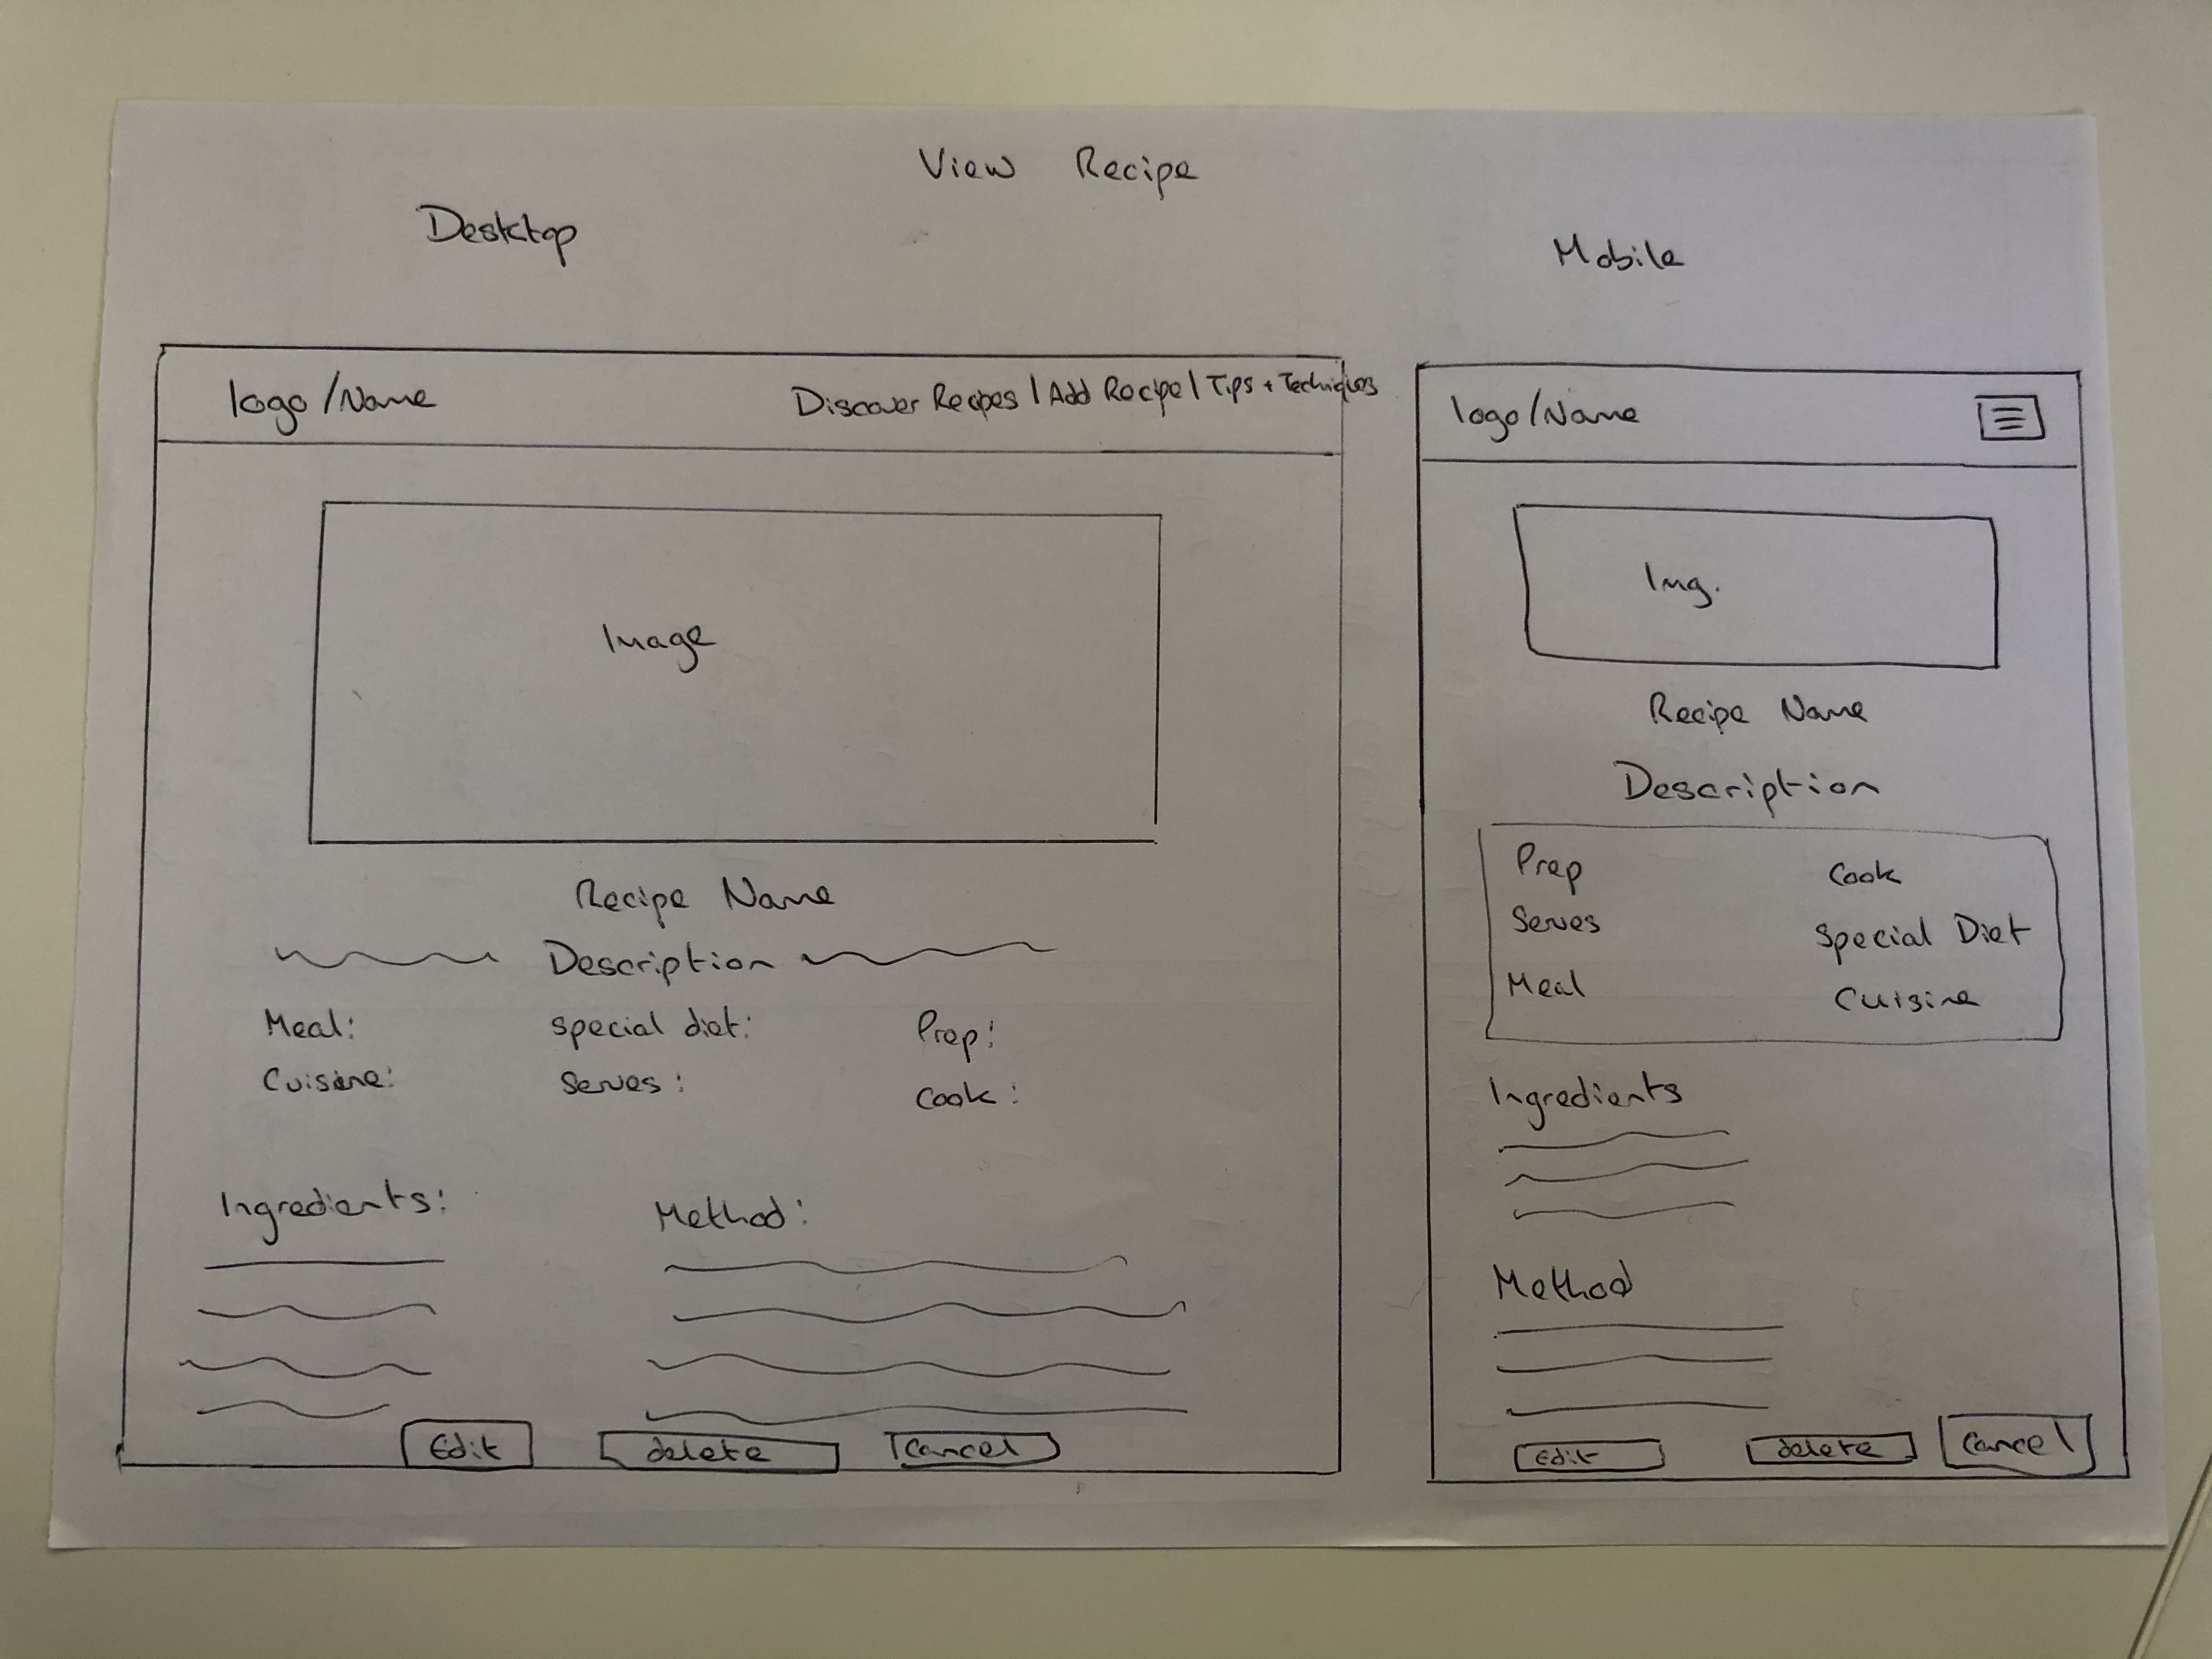 View Recipe
Desktop
Mobile
logo/Name
Discover Recipes | Add Recipe | Tips + Techniques
Image
Recipe Name
Description
Meal: special diet: Prep:
Cuisine: Serves: Cook:
Ingredients: Method:
Edit delete Cancel
logo/Name
Img.
Recipe Name
Description
Prep Cook
Serves Special Diet
Meal Cuisine
Ingredients
Method
Edit delete Cancel